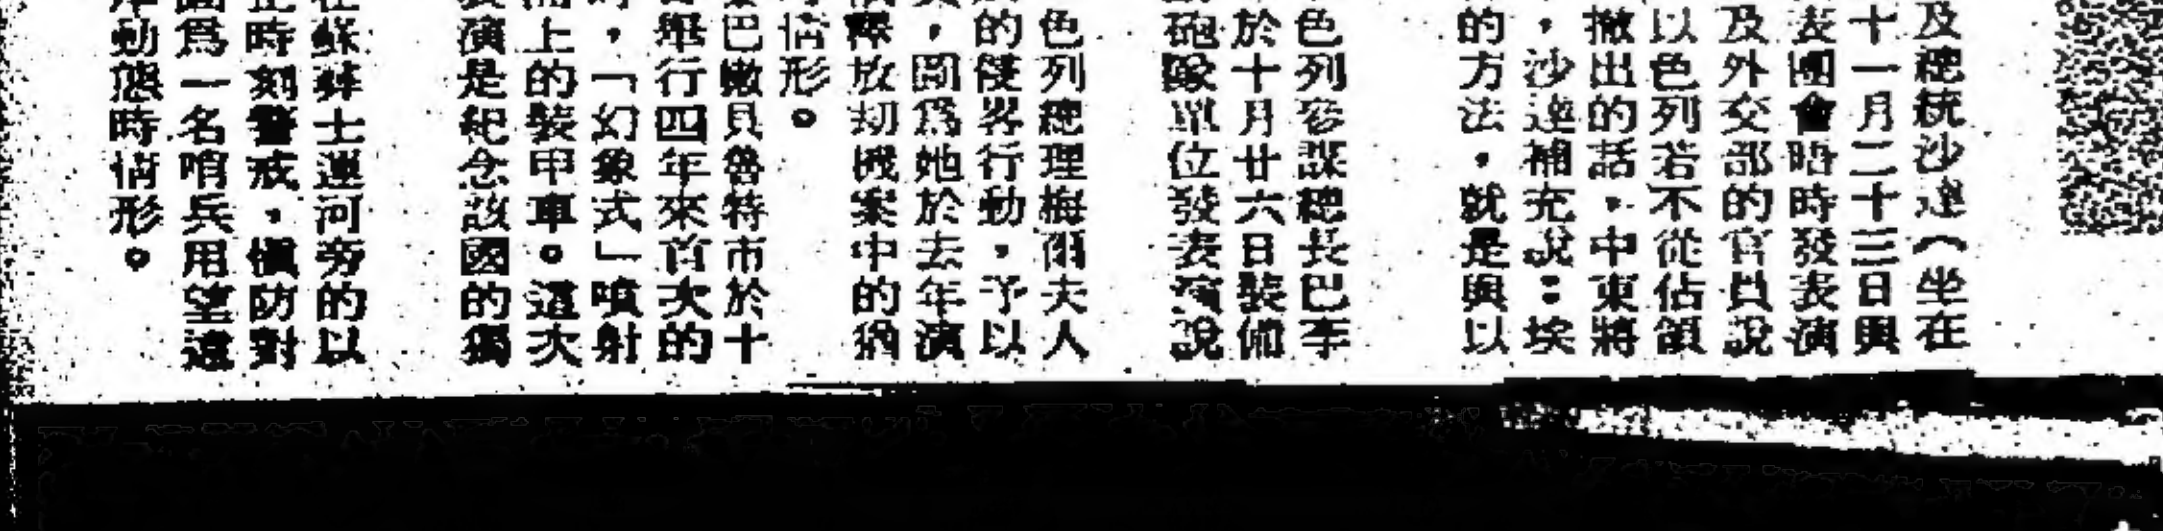 及總統沙達（坐在
十一月二十三日與
表團會晤時發表演
及外交部的官員說
以色列若不從佔領
撤出的話，中東將
，沙達補充說：埃
的方法，就是與以
色列參謀總長巴李
於十月廿六日裝備
砲隊單位發表演說
色列總理梅爾夫人
的侵畧行動，予以
，圖爲她於去年演
釋放刧機案中的猶
情形。
巴嫩貝魯特市於十
舉行四年來首次的
，「幻象式」噴射
上的裝甲車。這次
演是紀念該國的獨
在蘇彝士運河旁的以
正時刻警戒，慎防對
圖爲一名哨兵用望遠
岸動態時情形。